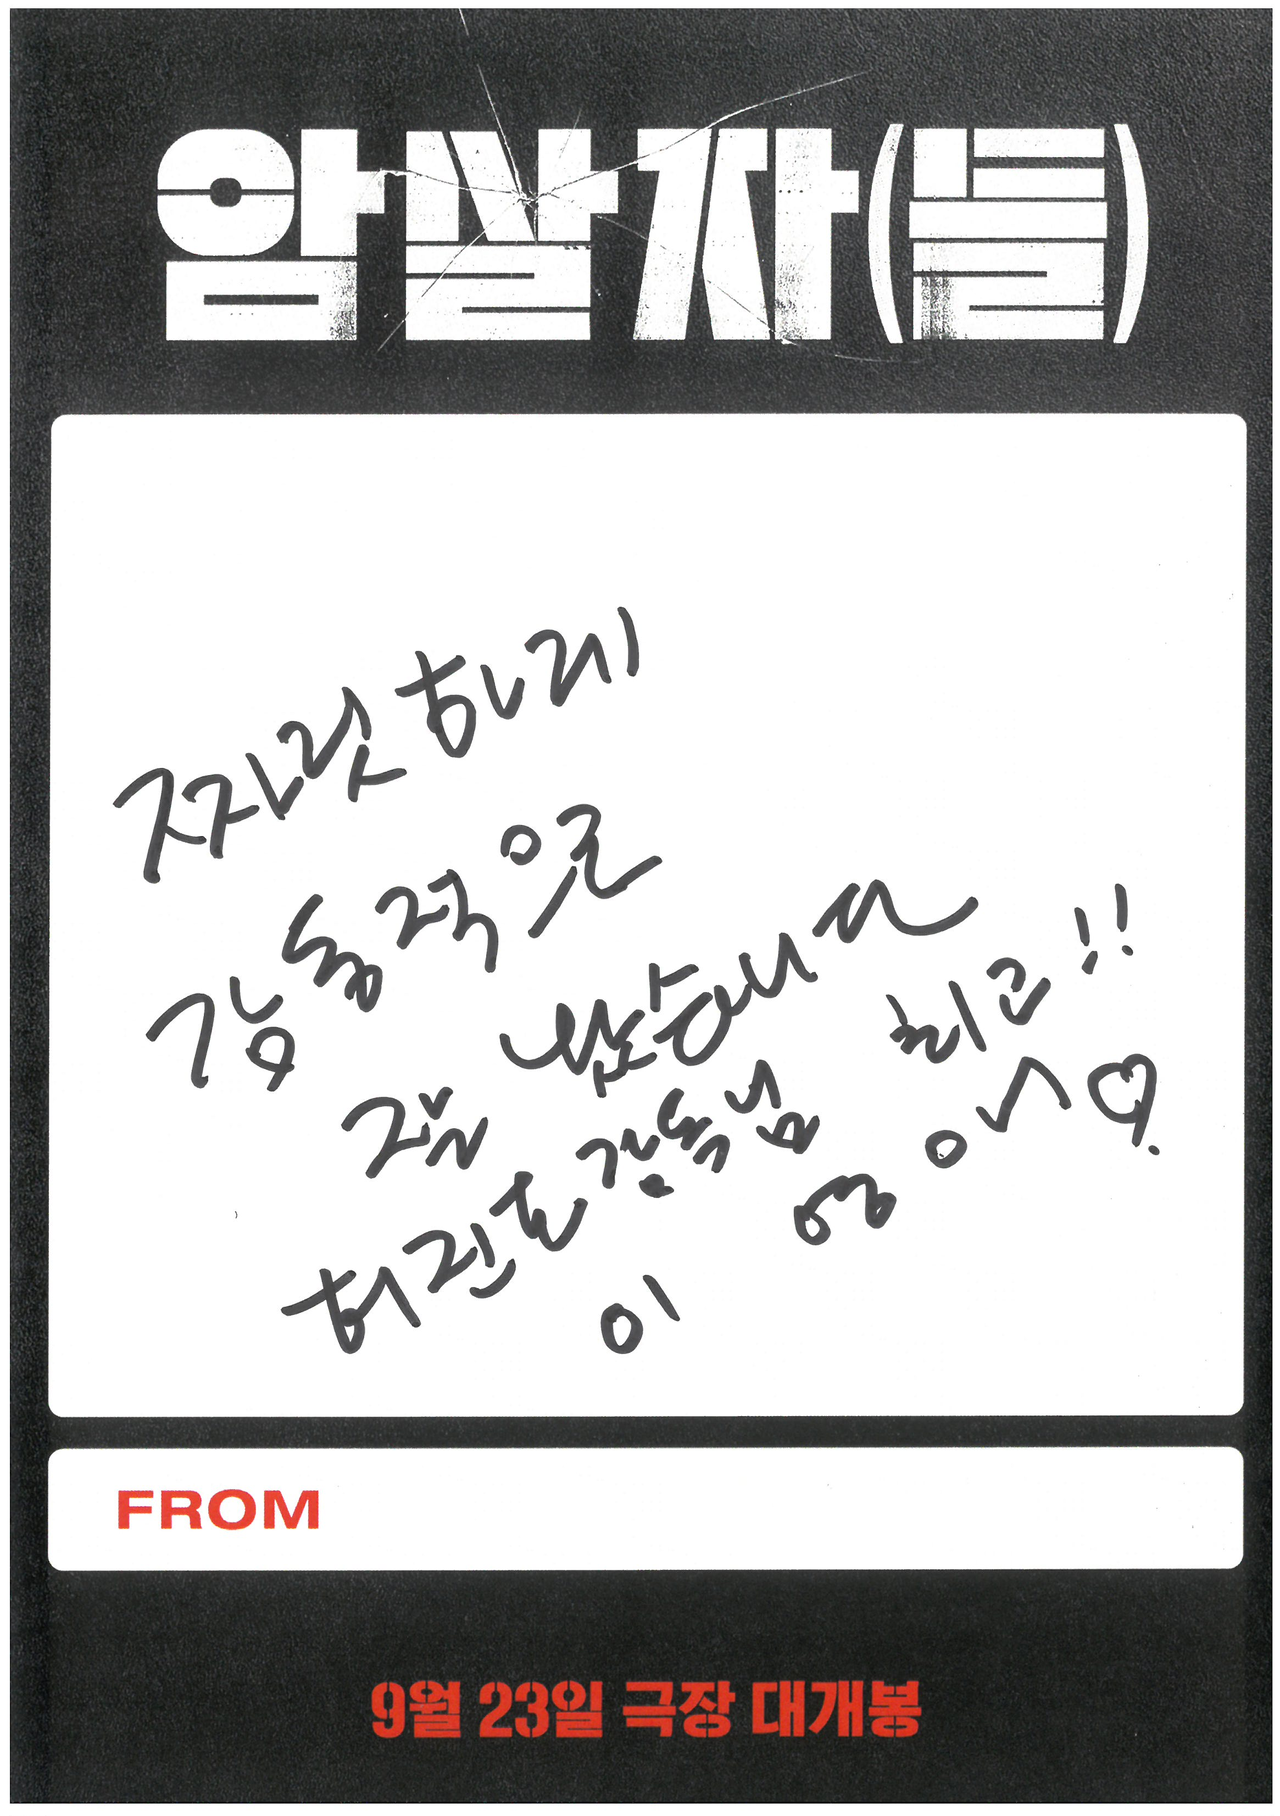 암살자(들)
짜릿하게
감동적으로
잘 봤습니다
허진호 감독님 최고!!
이영애♡
FROM
9월 23일 극장 대개봉